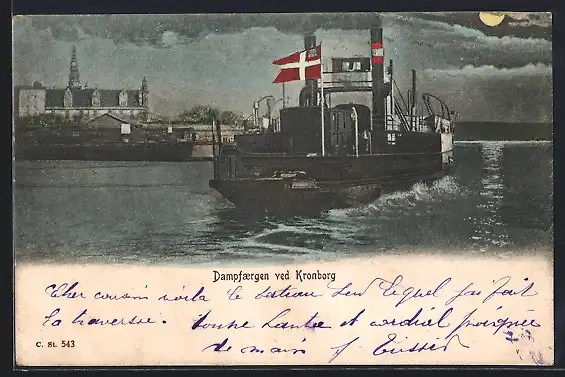 Dampfærgen ved Kronborg
Cher cousin voila le bateau sur lequel j'ai fait
la traversée. bonne santé et cordial poignée
de main
C. St. 543